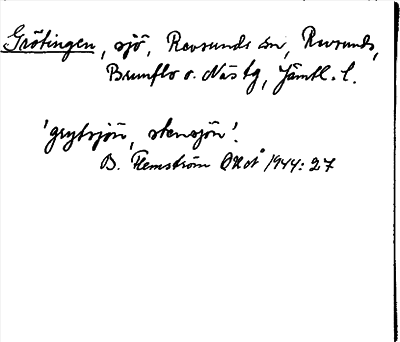 Grötingen, sjö, Revsunds sn, Revsunds,
Brunflo o. Näs tg, Jämtl. l.
'grytsjön, stensjön'.
B. Flemström OUÅ 1944: 27